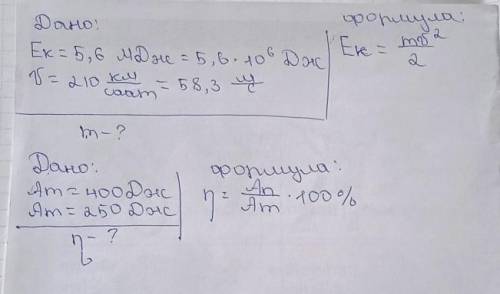 Дано:
Eк = 5,6 МДж = 5,6 · 10⁶ Дж
V = 210 км/саат = 58,3 м/с
m - ?
формула:
Eк = mV²/2
Дано:
Aт = 400 Дж
Aт = 250 Дж
η - ?
формула:
η = Aп/Aт · 100%